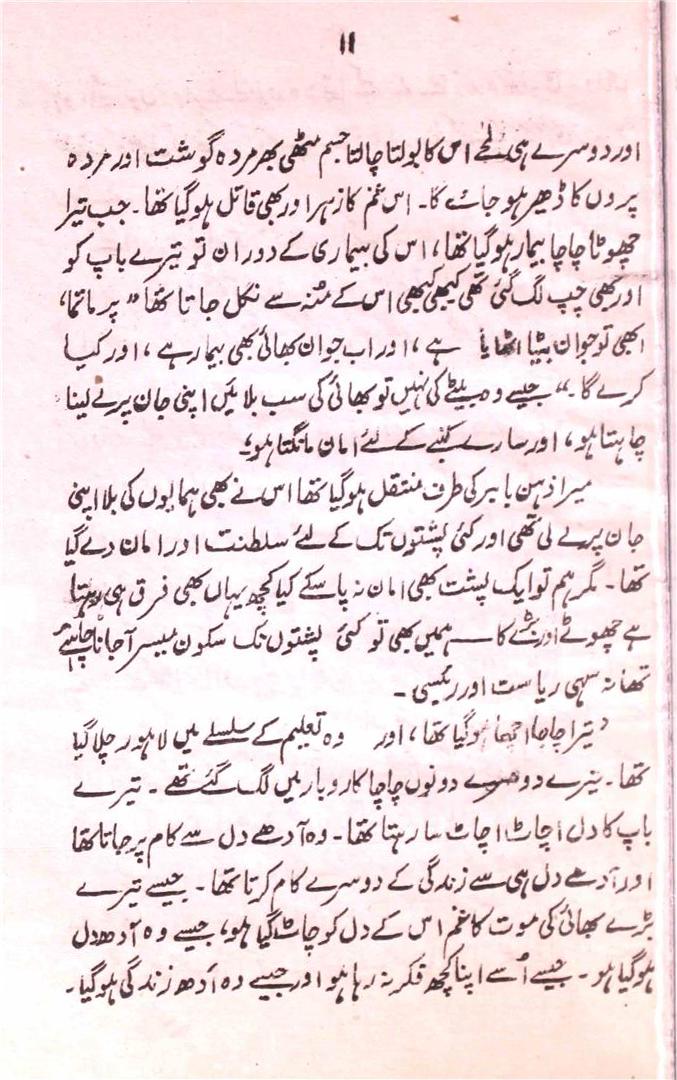 ۱۱
اور دوسرے ہی لمحے اس کا بولتا چالتا جسم مٹھی بھر مردہ گوشت اور مردہ
پروں کا ڈھیر ہو جائے گا۔ اس غم کا زہر اور بھی قاتل ہو گیا تھا۔ جب تیرا
چھوٹا چاچا بیمار ہو گیا تھا، اس کی بیماری کے دوران تو تیرے باپ کو
اور بھی چپ لگ گئی تھی کبھی کبھی اس کے منہ سے نکل جاتا تھا “ پر ماتما،
ابھی تو جوان بیٹا اٹھایا ہے، اور اب جوان بھائی بھی بیمار ہے، اور کیا
کرے گا۔” جیسے وہ بیٹے کی نہیں تو بھائی کی سب بلائیں اپنی جان پر لے لینا
چاہتا ہو، اور سارے کنبے کے لئے امان مانگتا ہو،
میرا ذہن بابر کی طرف منتقل ہو گیا تھا اس نے بھی ہمایوں کی بلا اپنی
جان پر لے لی تھی اور کئی پشتوں تک کے لئے سلطنت اور امان دے گیا
تھا۔ مگر ہم تو ایک پشت بھی امان نہ پا سکے کیا کچھ یہاں بھی فرق ہی رہتا
ہے چھوٹے اور بڑے کا ــــ ہمیں بھی تو کئی پشتوں تک سکون میسر آ جانا چاہئے
تھا نہ سہی ریاست اور رئیسی۔
“تیرا چاچا اچھا ہو گیا تھا، اور وہ تعلیم کے سلسلے میں لاہور چلا گیا
تھا۔ تیرے دوسرے دونوں چاچا کاروبار میں لگ گئے تھے۔ تیرے
باپ کا دل اچاٹ اچاٹ سا رہتا تھا۔ وہ آدھے دل سے کام پر جاتا تھا
اور آدھے دل ہی سے زندگی کے دوسرے کام کرتا تھا۔ جیسے تیرے
بڑے بھائی کی موت کا غم اس کے دل کو چاٹ گیا ہو، جیسے وہ آدھ دل
ہو گیا ہو۔ جیسے اُسے اپنا کچھ فکر نہ رہا ہو اور جیسے وہ آدھ زندگی ہو گیا۔